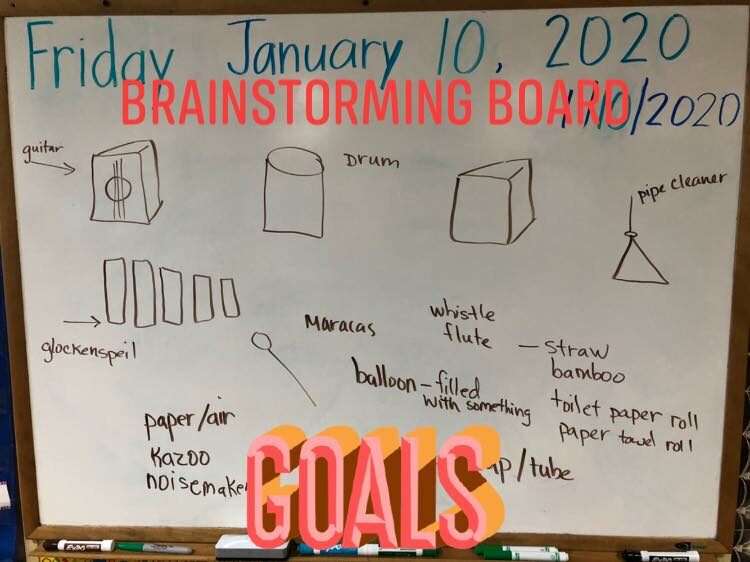 Friday January 10, 2020
BRAINSTORMING BOARD
/10/2020
guitar
DRUM
pipe cleaner
glockenspeil
Maracas
whistle
flute
balloon - filled
with something
— straw
bamboo
toilet paper roll
paper towel roll
paper/air
Kazoo
noisemake
/tube
GOALS
EXPO
EXPO